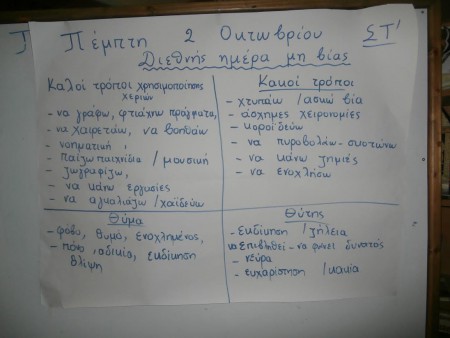 Πέμπτη 2 Οκτωβρίου ΣΤ'
Διεθνής ημέρα μη βίας
Καλοί τρόποι χρησιμοποίησης
χεριών
- να γράφω, φτιάχνω πράγματα,
- να χαιρετάω, να βοηθάω
- νοηματική
- παίζω παιχνίδια / μουσική
- ζωγραφίζω,
- να κάνω εργασίες
- να αγκαλιάζω / χαϊδεύω
Κακοί τρόποι
- χτυπάω / ασκώ βία
- άσχημες χειρονομίες
- κοροϊδεύω
- να πυροβολάω - σκοτώνω
- να κάνω ζημιές
- να ενοχλήσω
Θύμα
- φόβο, θυμό, ενοχλημένος,
- πόνο, αδικία, εκδίκηση
θλίψη
Θύτης
- εκδίκηση / ζήλεια
να επιβληθεί - να φανεί δυνατός
- νεύρα
- ευχαρίστηση / κακία